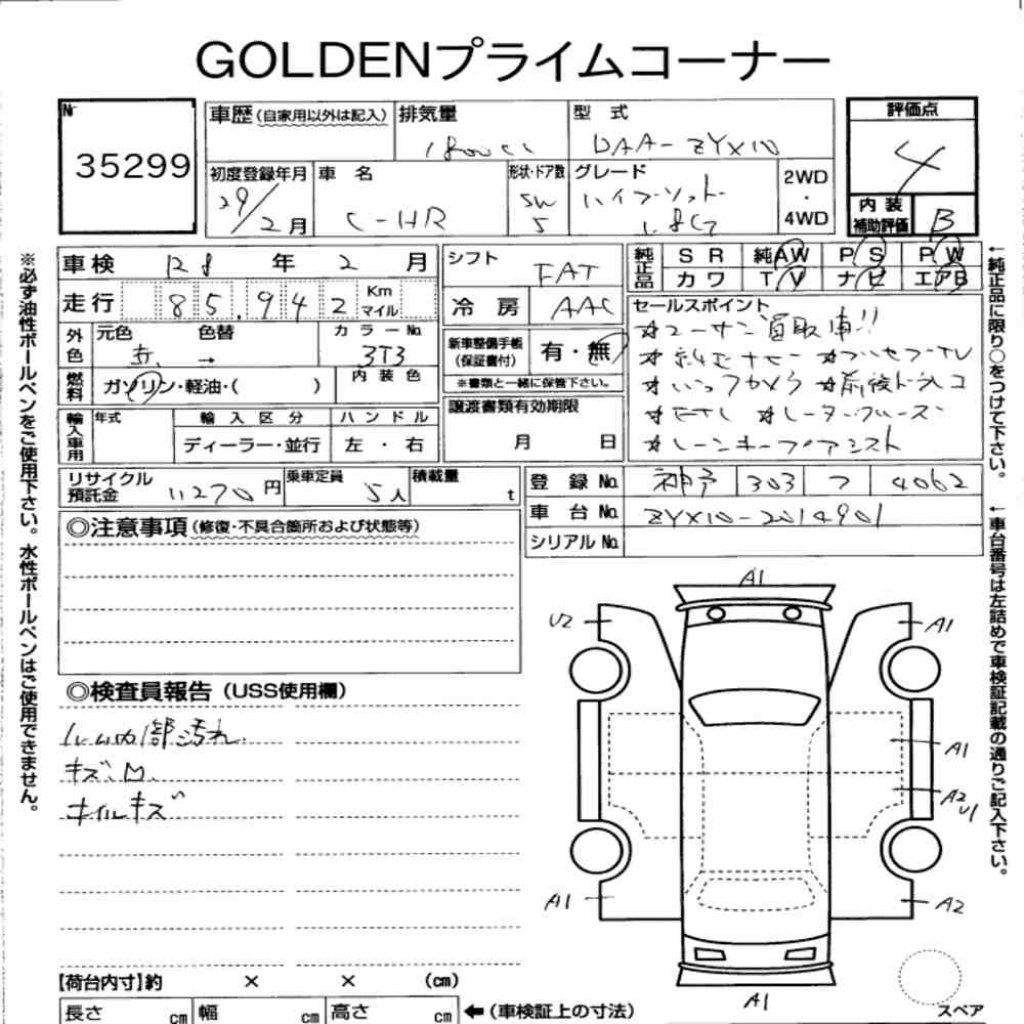 GOLDENプライムコーナー
Nr
35299
車歴(自家用以外は記入)
排気量
1800cc
型 式
DAA-ZYX10
初度登録年月
29/2月
車 名
C-HR
形状・ドア数
SW
5
グレード
ハイブリット
1.8G
2WD
・
4WD
評価点
4
内 装
補助評価
B
車検 年 2 月
走行 85,942 Km マイル
外色
元色 色替
赤 →
カラーNo
3T3
燃料
ガソリン・軽油・( )
内 装 色
輸入車用
年式
輸 入 区 分
ディーラー・並行
ハ ン ド ル
左 ・ 右
シフト
FAT
冷 房
AAC
新車整備手帳
(保証書付)
有・無
※書類と一緒に保管下さい。
譲渡書類有効期限
月 日
純正品
S R 純AW P S P W
カワ T V ナビ エアB
セールスポイント
☆ユーザー買取車!!
☆純正ナビー ☆フルセグTV
☆バックカメラ ☆前後ドラレコ
☆レーダークルーズ
☆レーンキープアシスト
リサイクル
預託金
11270円
乗車定員
5人
積載量
t
登 録 No 神戸 303 フ 4062
車 台 No ZYX10-2014901
シリアル No
◎注意事項(修復・不具合箇所および状態等)
◎検査員報告(USS使用欄)
ルーム内部汚れ
キズ、M.
ホイルキズ
A1
U2
A1
A1
A2
U1
A1
A2
A1
スペア
【荷台内寸】約 × × (cm)
長さ cm 幅 cm 高さ cm
←(車検証上の寸法)
※必ず油性ボールペンをご使用下さい。水性ボールペンはご使用できません。
←純正品に限り○をつけて下さい。
←車台番号は左詰めで車検証記載の通りご記入下さい。